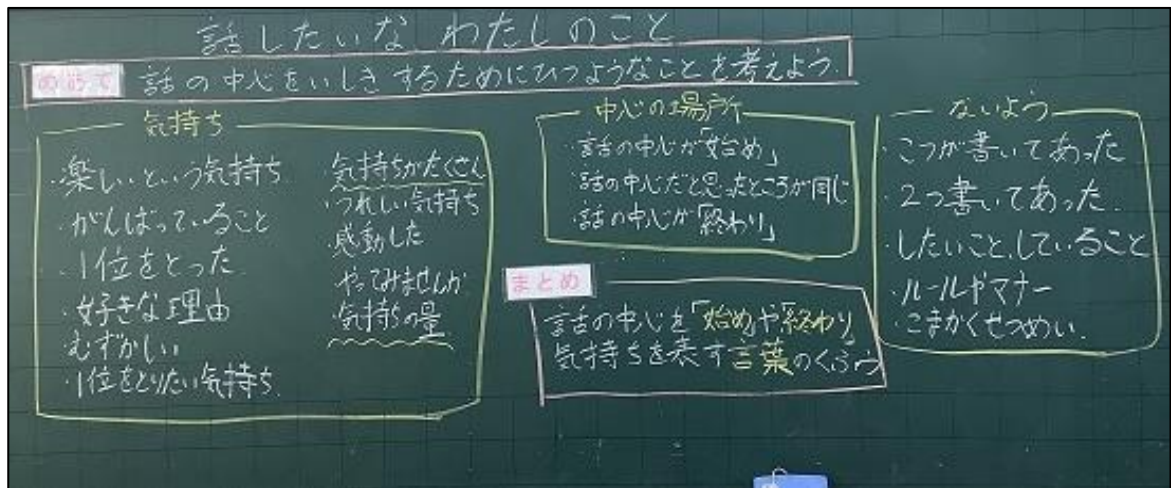 話したいな わたしのこと
めあて 話の中心をいしきするためにひつようなことを考えよう。
気持ち
・楽しいという気持ち
・がんばっていること
・1位をとった
・好きな理由
むずかしい
・1位をとりたい気持ち
気持ちがたくさん
・うれしい気持ち
・感動した
・やってみませんか
・気持ちの量
中心の場所
・話の中心が「始め」
・話の中心だと思ったところが同じ
・話の中心が「終わり」
まとめ
話の中心を「始め」や「終わり」
気持ちを表す言葉のくふう
ないよう
・こつが書いてあった
・2つ書いてあった
・したいこと、していること
・ルールやマナー
・こまかくせつめい